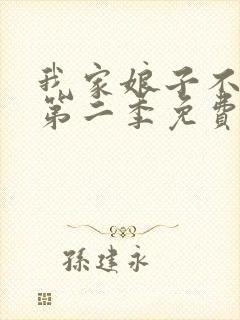 我家娘子不
第二季免費
孫建永